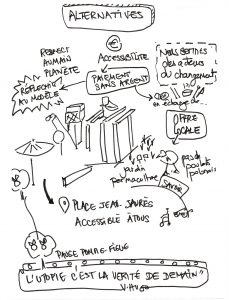 ALTERNATIVES
€
RESPECT
HUMAIN
PLANÈTE
ACCESSIBILITÉ
NOUS SOMMES
du changement
RÉFLÉCHIR
AU MODÈLE
PAIEMENT
SANS ARGENT
en échange de...
OFFRE
LOCALE
jardin
permaculture
SAVOIR
PLACE JEAN JAURÈS
ACCESSIBLE À TOUS
PAUSE POMME-FIGUE
"L'UTOPIE C'EST LA VÉRITÉ DE DEMAIN"
V. HUGO